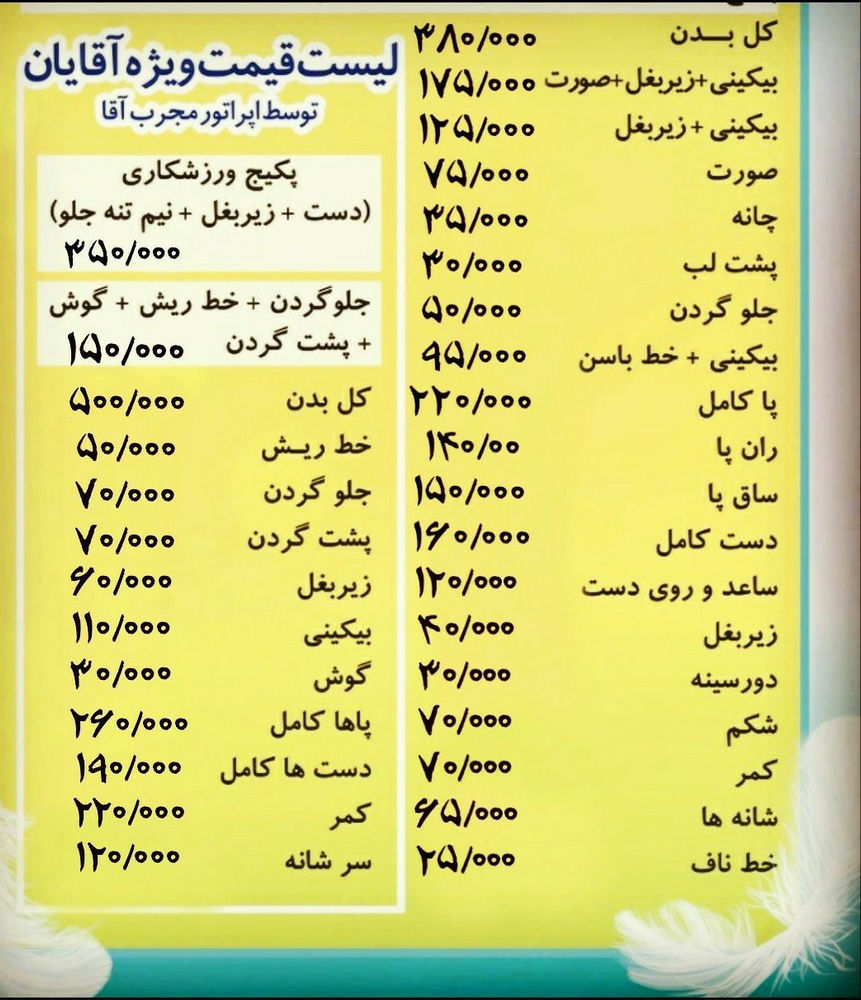 کل بــدن ۳۸۰/۰۰۰
بیکینی+زیربغل+صورت ۱۷۵/۰۰۰
بیکینی + زیربغل ۱۲۵/۰۰۰
صورت ۷۵/۰۰۰
چانه ۳۵/۰۰۰
پشت لب ۳۰/۰۰۰
جلو گردن ۵۰/۰۰۰
بیکینی + خط باسن ۹۵/۰۰۰
پا کامل ۲۲۰/۰۰۰
ران پا ۱۴۰/۰۰
ساق پا ۱۵۰/۰۰۰
دست کامل ۱۶۰/۰۰۰
ساعد و روی دست ۱۲۰/۰۰۰
زیربغل ۴۰/۰۰۰
دورسینه ۳۰/۰۰۰
شکم ۷۰/۰۰۰
کمر ۷۰/۰۰۰
شانه ها ۶۵/۰۰۰
خط ناف ۲۵/۰۰۰
لیست قیمت ویژه آقایان
توسط اپراتور مجرب آقا
پکیج ورزشکاری
(دست + زیربغل + نیم تنه جلو)
۳۵۰/۰۰۰
جلوگردن + خط ریش + گوش
+ پشت گردن ۱۵۰/۰۰۰
کل بدن ۵۰۰/۰۰۰
خط ریـش ۵۰/۰۰۰
جلو گردن ۷۰/۰۰۰
پشت گردن ۷۰/۰۰۰
زیربغل ۶۰/۰۰۰
بیکینی ۱۱۰/۰۰۰
گوش ۳۰/۰۰۰
پاها کامل ۲۶۰/۰۰۰
دست ها کامل ۱۹۰/۰۰۰
کمر ۲۲۰/۰۰۰
سر شانه ۱۲۰/۰۰۰